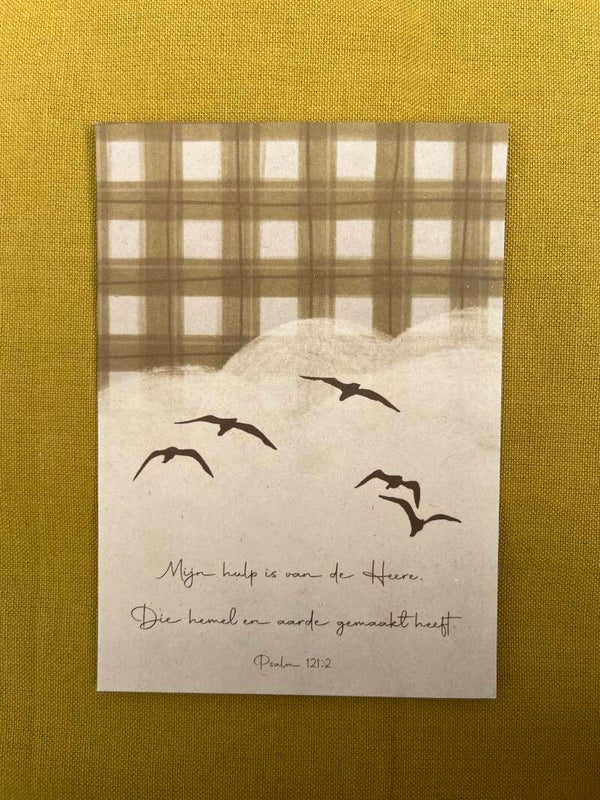 Mijn hulp is van de Heere.
Die hemel en aarde gemaakt heeft.
Psalm 121:2